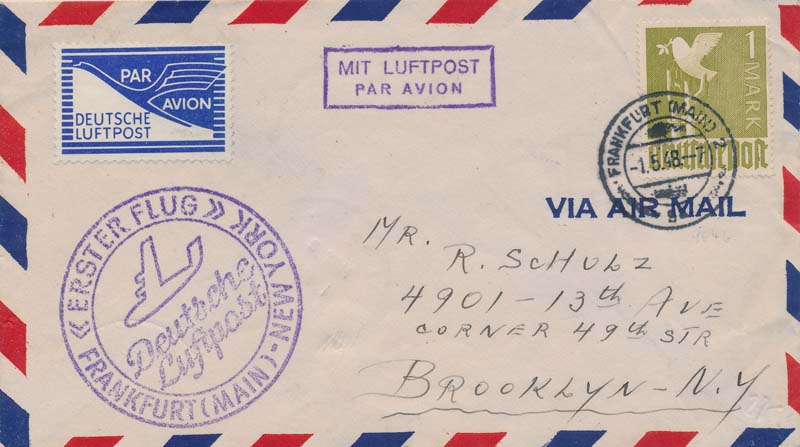 PAR
AVION
DEUTSCHE
LUFTPOST
MIT LUFTPOST
PAR AVION
1 MARK
Deutsche Post
FRANKFURT (MAIN) 2
-1.5.48.--7
VIA AIR MAIL
« ERSTER FLUG »
FRANKFURT (MAIN) - NEW YORK
Deutsche
Luftpost
MR.
R. SCHULZ
4901 - 13th AVE
CORNER 49th STR
BROOKLYN - N.Y